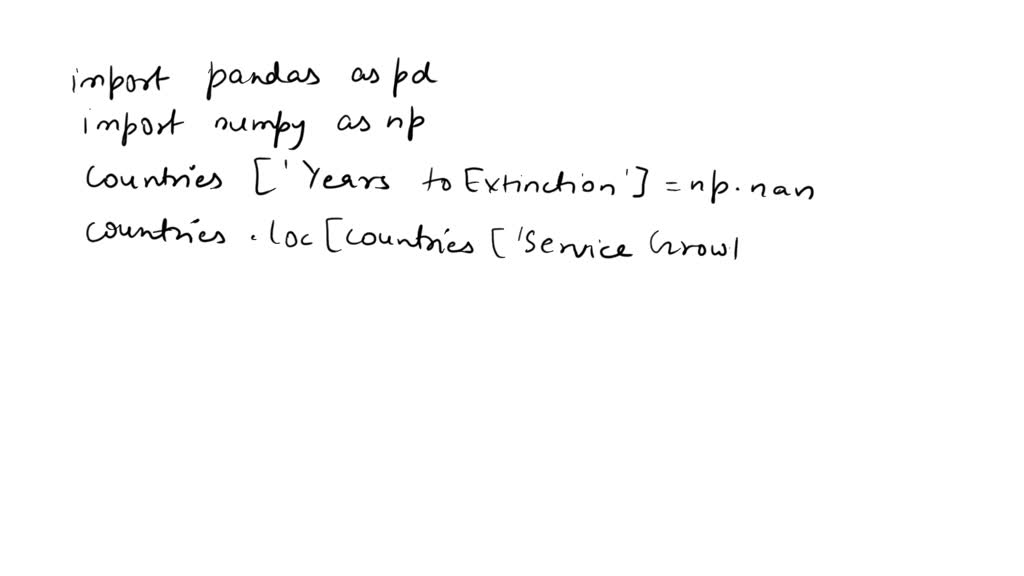 import pandas as pd
import numpy as np
countries ['Years to Extinction'] = np.nan
countries .loc [countries ['Service Growl